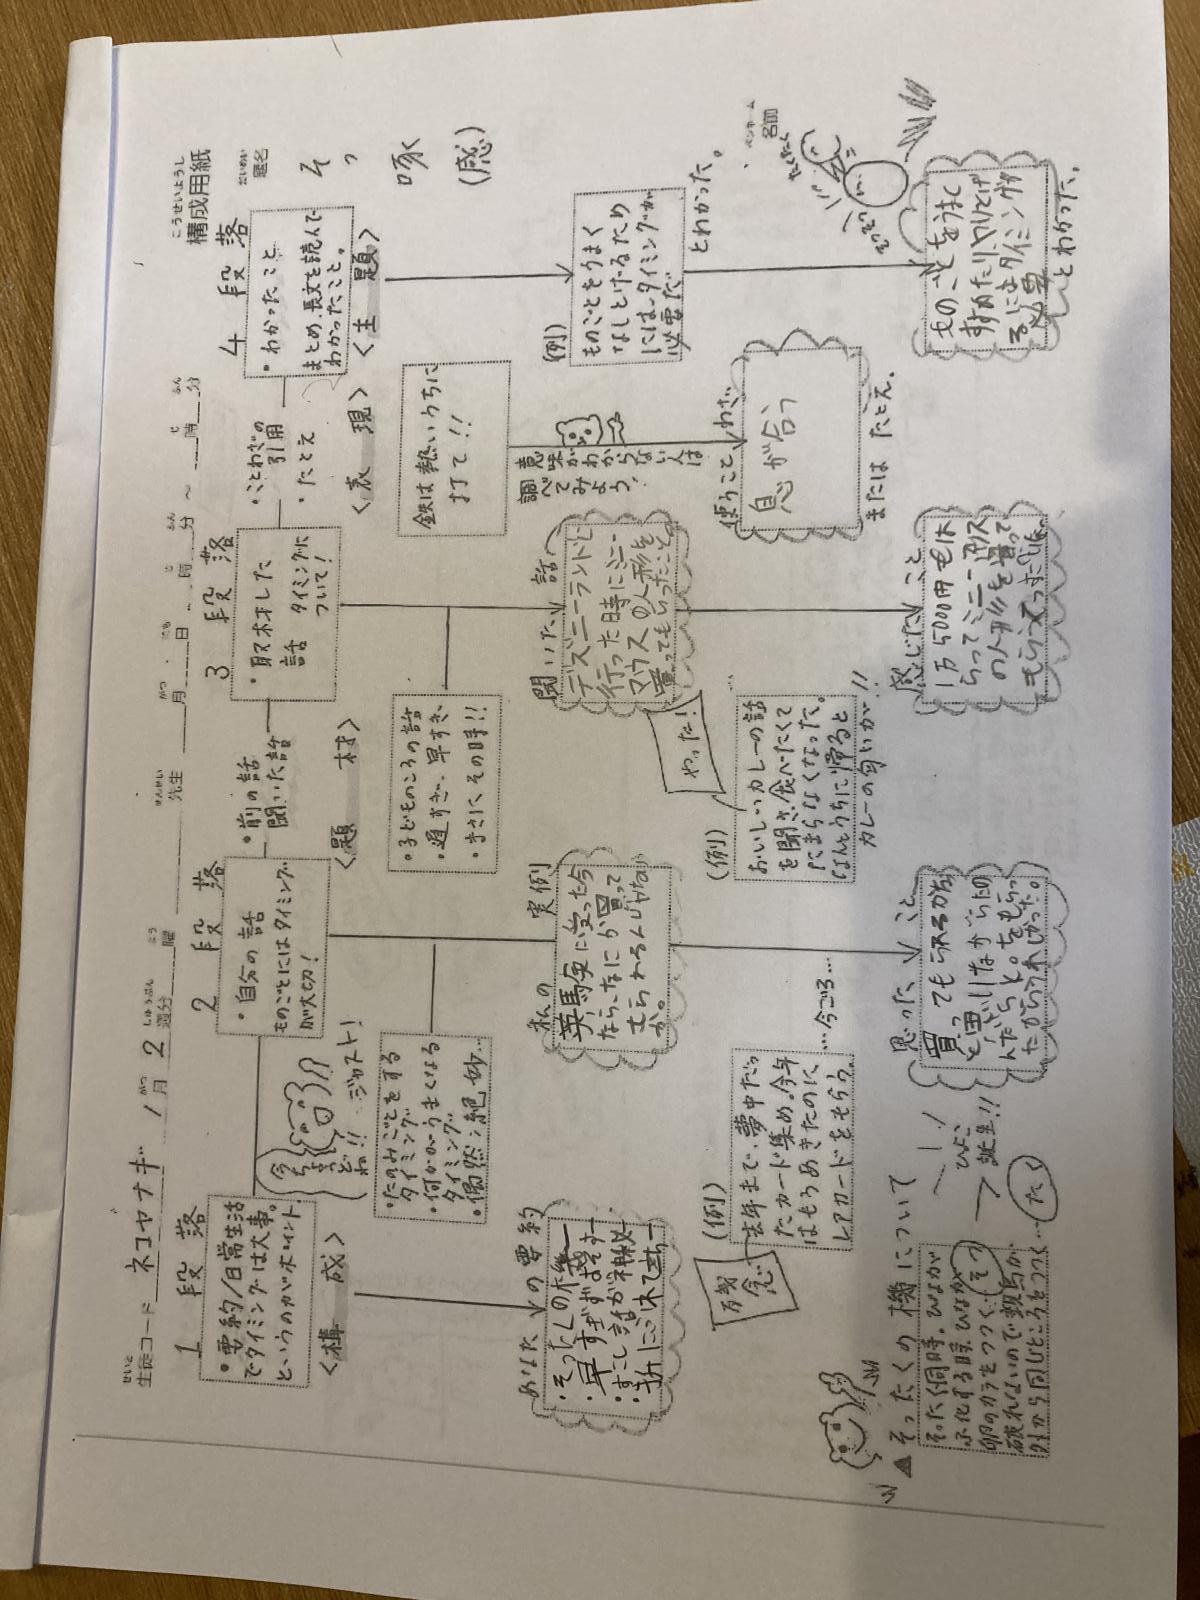 こうせいようし
構成用紙
せいと
生徒コード ネコヤナギ
1 がつ月 2 しゅうぶん週分 よう曜
せんせい
先生
がつ月 にち日 じ時 ふん分 〜 じ時 ふん分
だいめい
題名
そっ啄 (感)
ペンネーム
名前
1 段落
・要約/日常生活
でタイミングは大事。
というのがポイント!
<構成>
今ちょうどね!!
ジャスト!
2 段落
・自分の話
ものごとにはタイミング
が大切!
・前の話
聞いた話
<題材>
3 段落
・取材した
話 タイミングに
ついて!
・ことわざの
引用
・たとえ
<表現>
4 段落
・わかったこと
まとめ、長文を読んで
わかったこと。
<主題>
・たのみごとをする
タイミング
・何かがうまくなる
タイミング
・偶然、絶妙…
・子どものころの話
・遅すぎ、早すぎ、
・まさにその時!!
鉄は熱いうちに
打て!!
意味がわからない人は
調べてみよう!
(例)
ものごとをうまく
なしとげるため
には、タイミングが
必要だ
とわかった。
あなたの要約
・そったくの機
・早すぎず遅すぎず
私の実例
英馬実に受った今
なら、なにか買って
もらわるんじゃない
か。
聞いた話
デズニーランドに
行った時にミニー
マウスの人形を
買ってもらったこと
使うことわざ
息が合う
またはたとえ.
そっそつ
たくたく
残念
(例)
去年まで、夢中だっ
たカード集め。今年
はもうあきたのに
レアカードをもらう。
…今ごろ…
やった!
(例)
おいしいカレーの話
を聞き、食べたくて
たまらなくなった。
なんとうちに帰ると
カレーの匂いが…!!
▲そったくの機について
そったく同時。ひよこが
ふ化する時、ひなが
卵のカラをつつく…そつ
破れないので親鳥が
外から同じところをつつく…たく
ひよこ
誕生!!
思ったこと
買ってもらえるかな
と思いながら、
感じたこと
1万5000円もは
らってミニーマウス
の人形を買って
もらえて
ものごとをうまく
すすめたり、やりとげ
るにはタイミングが
必要
とわかった。